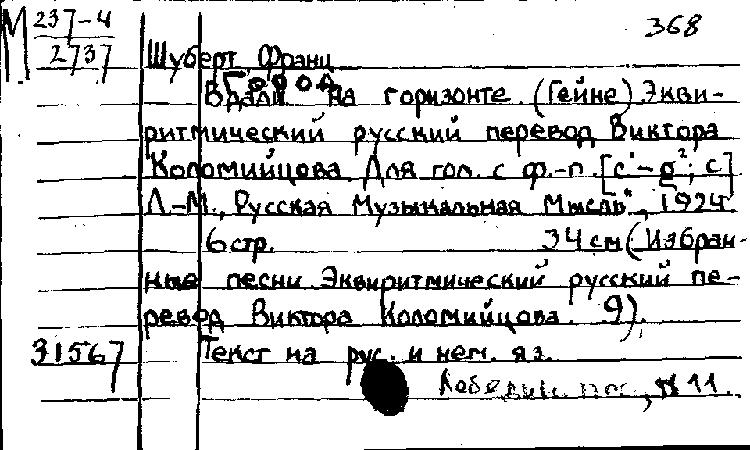 М 237-4
2737
368
Шуберт, Франц
Город
Вдали на горизонте. (Гейне). Экви-
ритмический русский перевод Виктора
Коломийцова. Для гол. с ф.-п. [c'-g²; c]
Л.-М., "Русская Музыкальная Мысль", 1924
6 стр. 34 см (Избран-
ные песни. Эквиритмический русский пе-
ревод Виктора Коломийцова. 9).
31567
Текст на рус. и нем. яз.
№ 11.